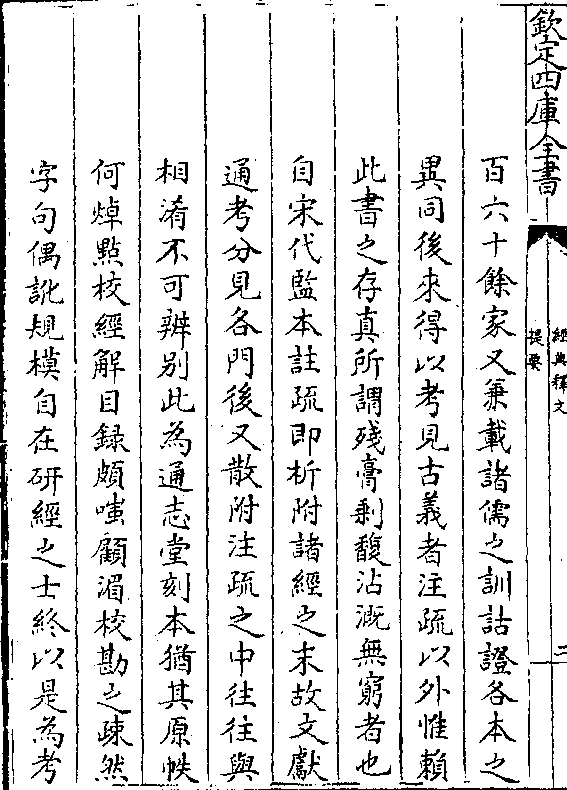 欽定四庫全書
經典釋文
提要
二
百六十餘家又兼載諸儒之訓詁證各本之
異同後來得以考見古義者注疏以外惟賴
此書之存真所謂殘膏剩馥沾溉無窮者也
自宋代監本註疏即析附諸經之末故文獻
通考分見各門後又散附注疏之中往往與
相淆不可辨别此為通志堂刻本猶其原帙
何焯點校經解目録頗嗤顧湄校勘之疎然
字句偶訛規模自在研經之士終以是為考